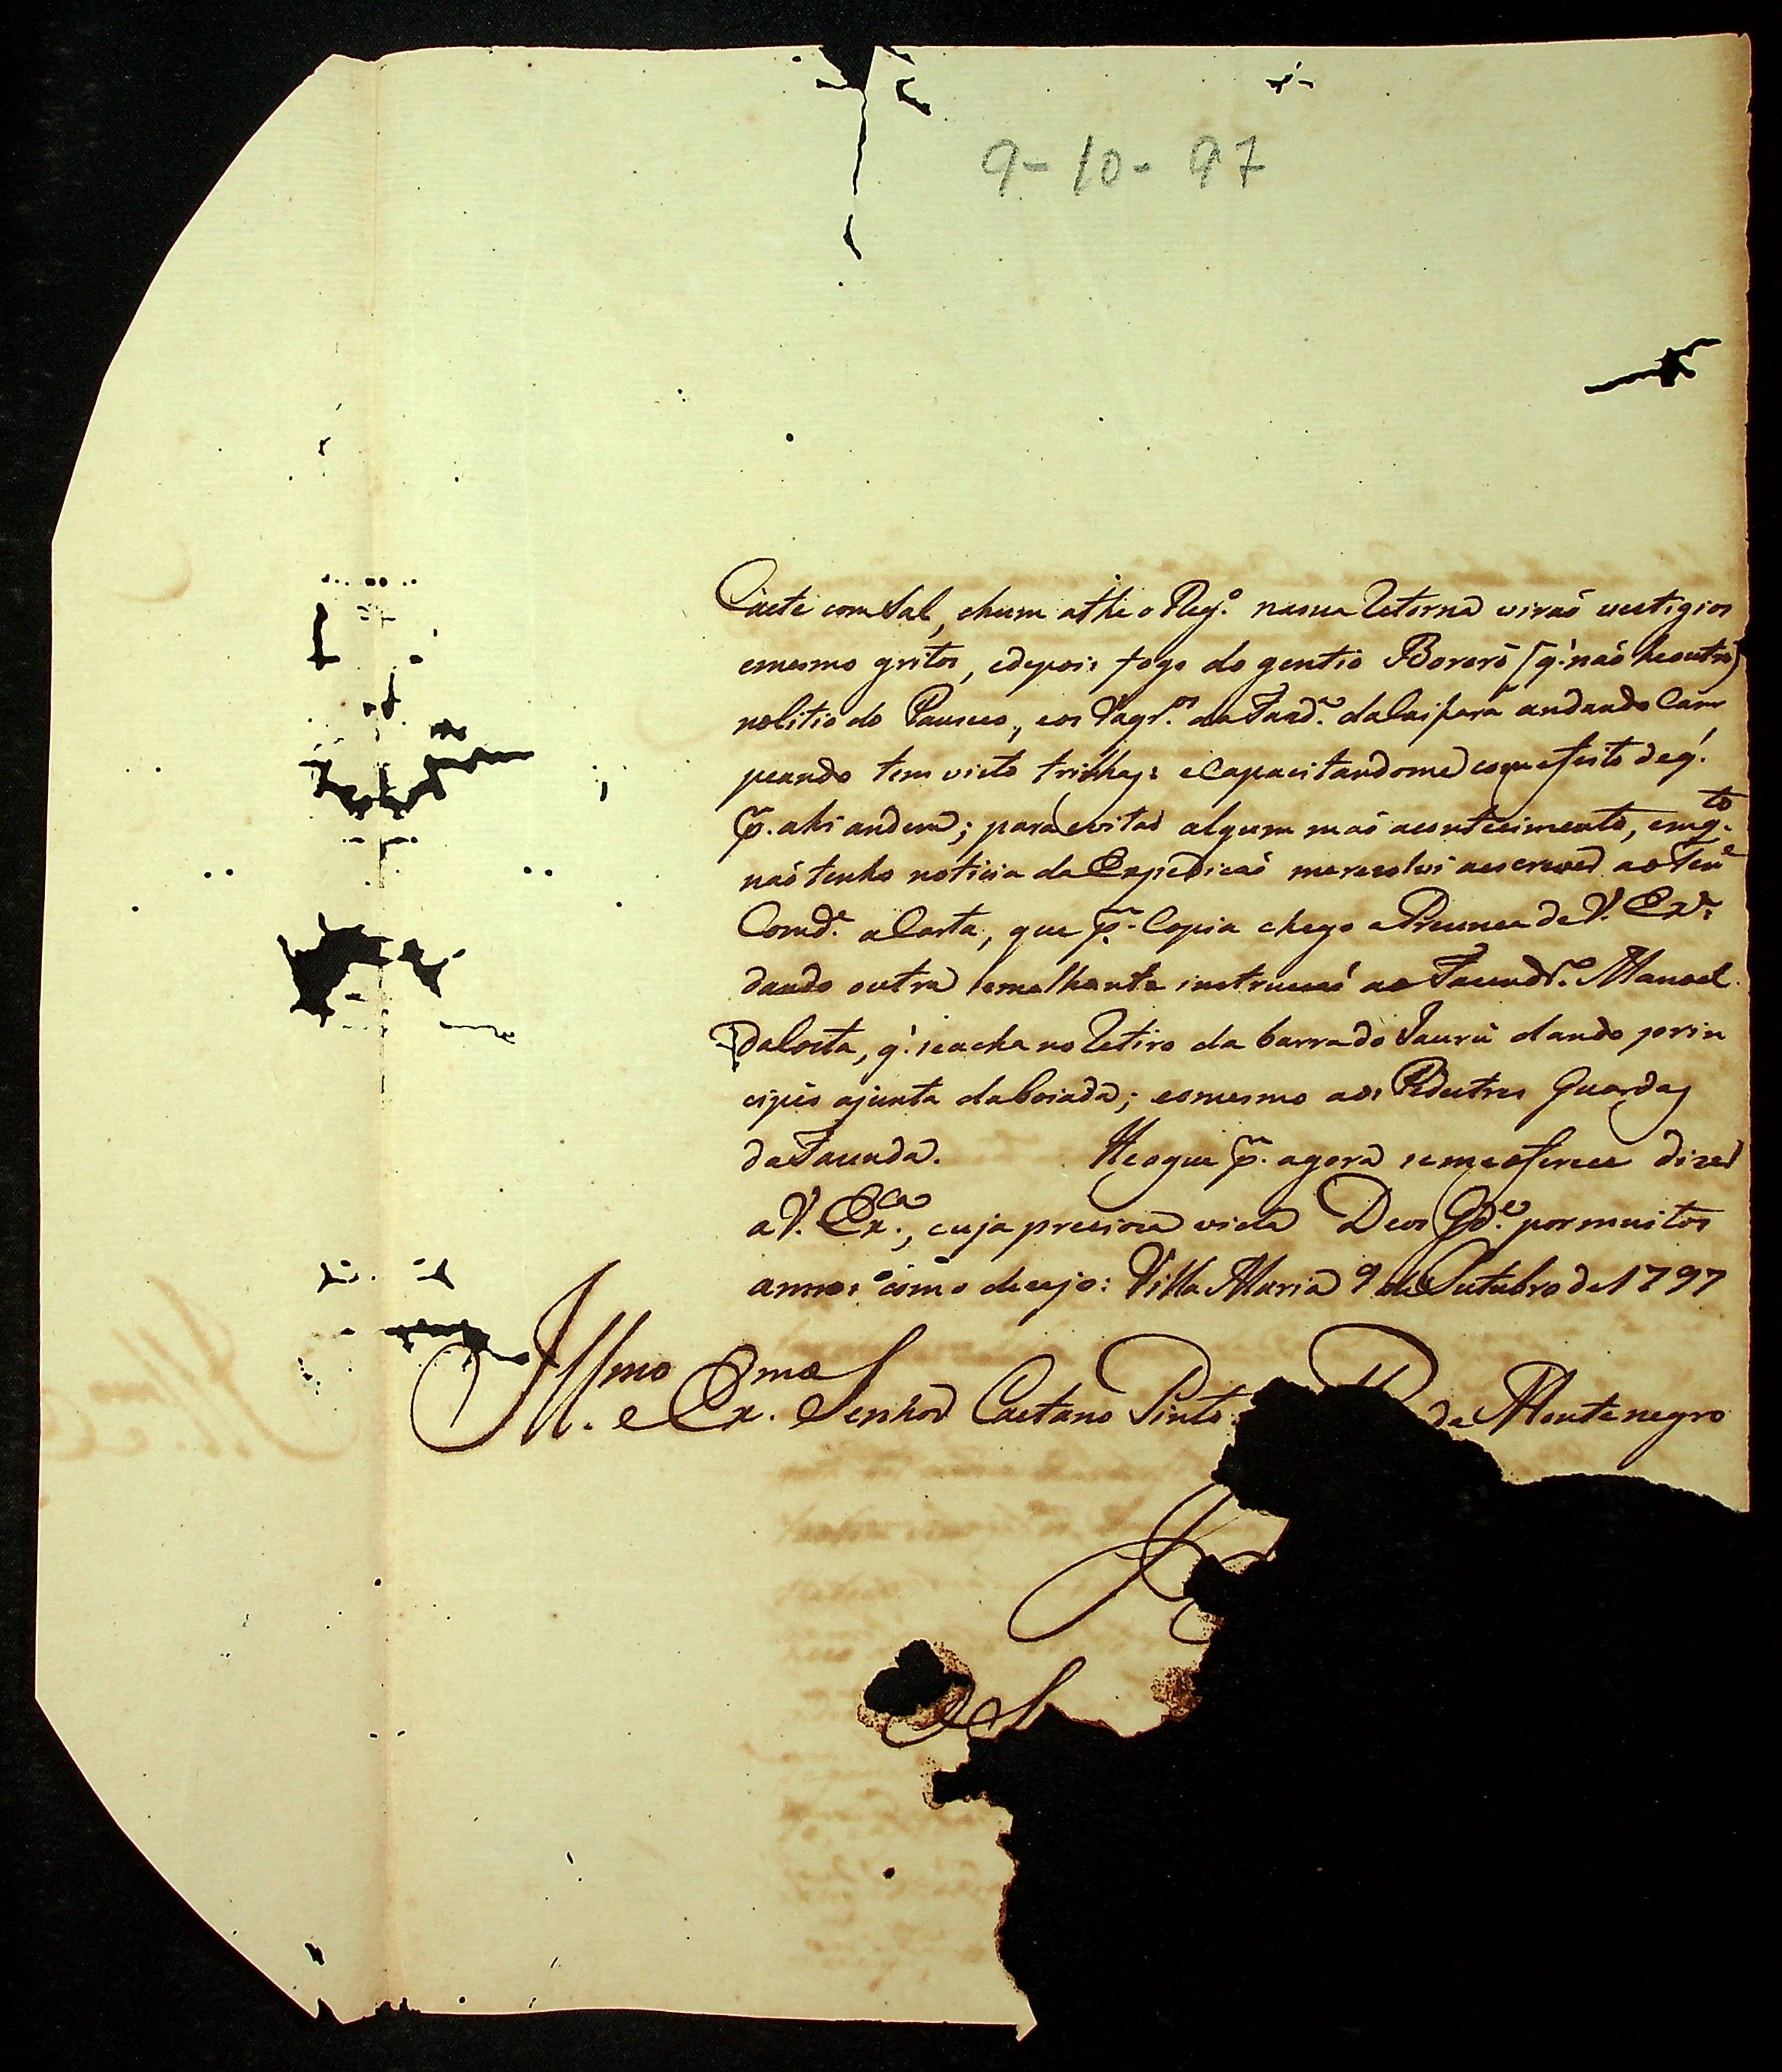 9-10-97
Caete com Sal, e hum athe o Reg.º na sua retorna virão vestigios
e mesmo gritos, e depois fogo do gentio Bororó [q' não he outro]
no Sitio do Pauseco, e os Vaqr.os da Fazd.ª da Caiçara andando Cam
peando tem visto trilhas: e Capacitandome com efeito de q'
p.r ahi andem; para evitar algum mao acontecimento, emq.to
não tenho noticia da Expedicaó me rezolvi a escrever ao Ten.e
Comd.e a Carta, que p.r Copia chega a Prezença de V. Ex.ª
dando outra semelhante instrucaó ao Fazendr.º Manoel
da Costa, q' se acha no retiro da barra do Jaurú dando prin
cipio a junta da boiada; e o mesmo aos Pedestres Guardas
da Fazenda. He o que p.r agora se me oferece dizer
a V. Ex.cia, cuja precioza vida Deos G.de por muitos
annos como dezejo: Villa Maria 9 de Outubro de 1797
Ill.mo e Ex.mo Senhor Caetano Pinto de Montenegro